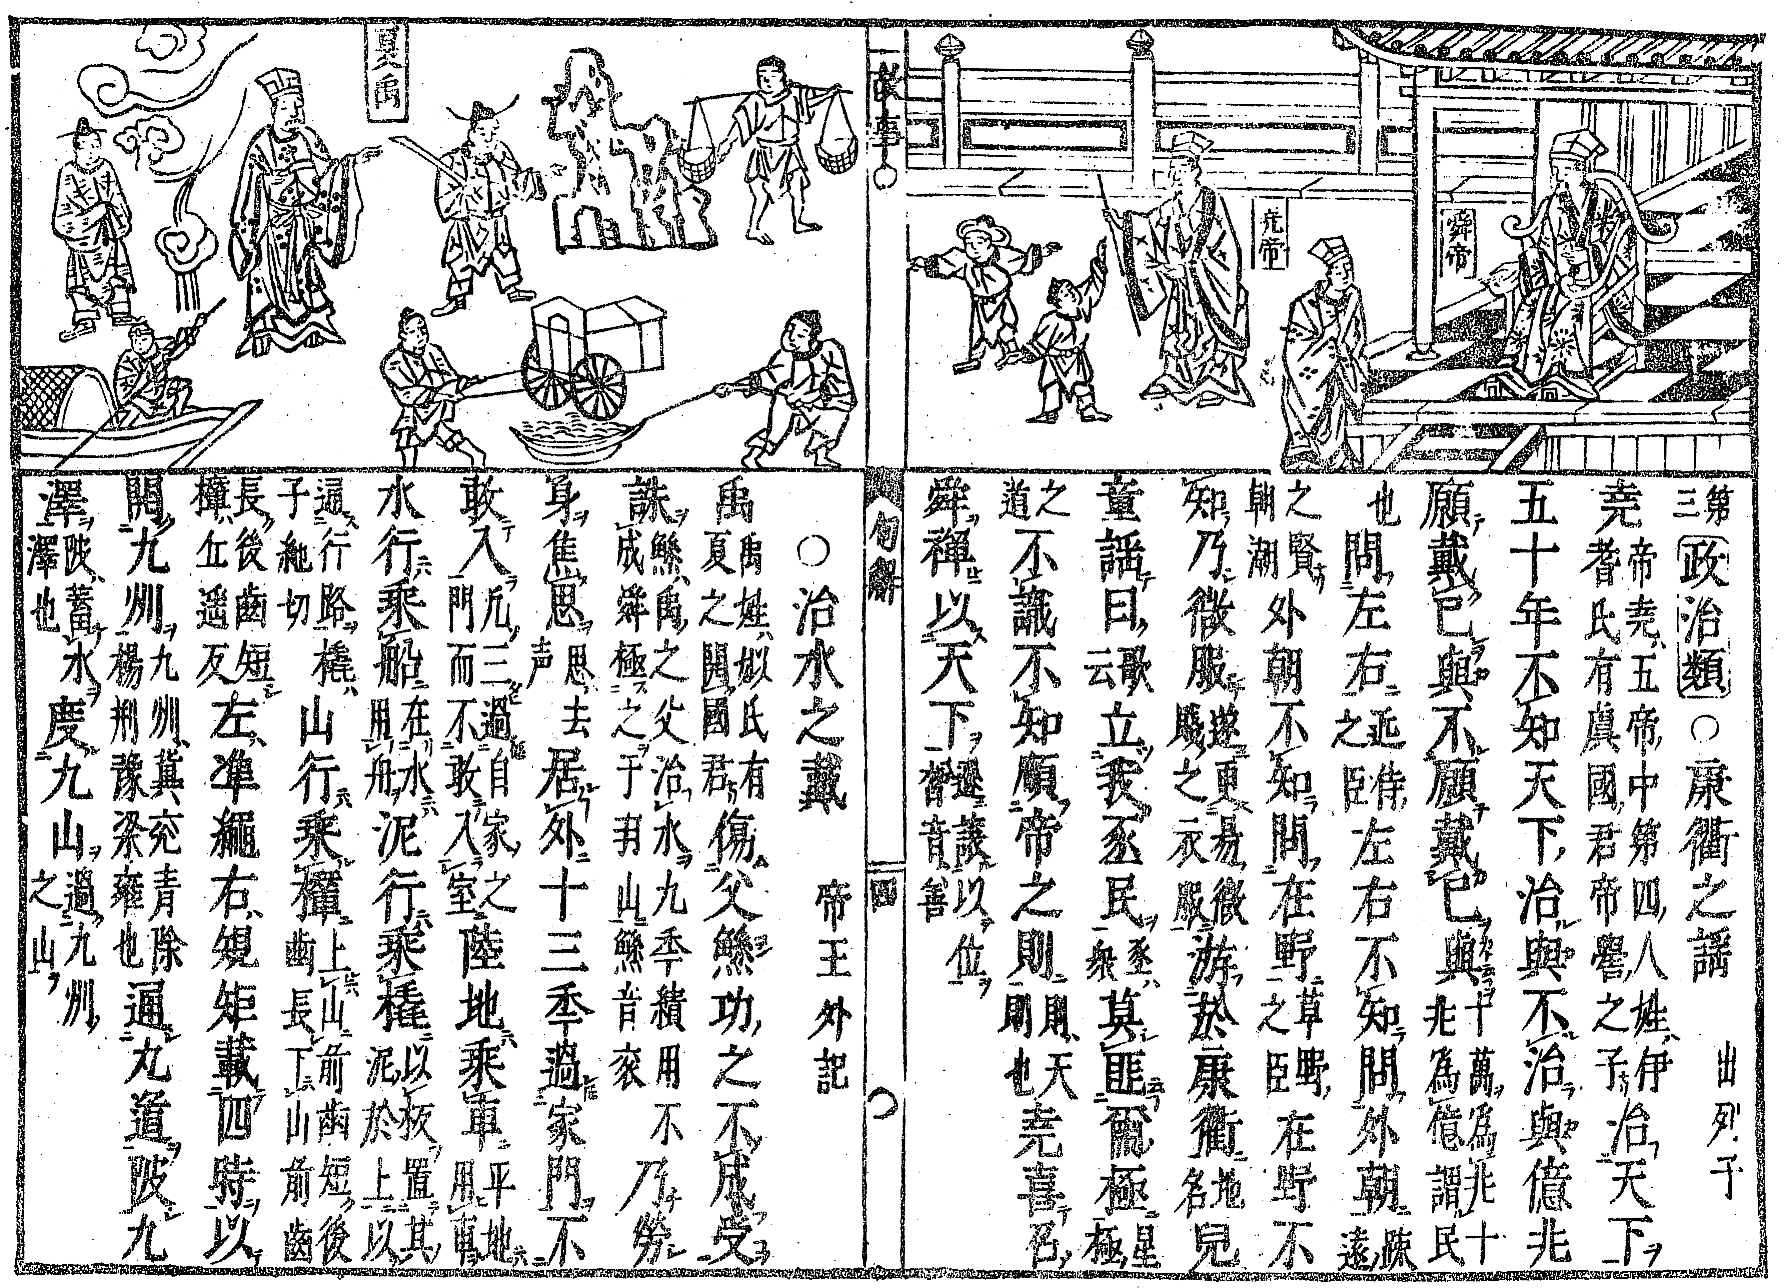 舜帝
尭帝
第三 政治類 ○康衢之謡 出列子
尭帝尭五帝中第四人姓伊耆氏有虞國君帝嚳之子治天下
五十年不知天下治與不治與億兆
願戴已與不願戴已與十萬為兆十兆為億謂民
也問左右近侍之臣左右不知問外朝踈遠
之賢朝潮外朝不知問在野草野之臣在野不
知乃微服遂更易微賤之衣服游於康衢地名兒
童謡曰歌云立我烝民烝衆莫匪爾極星極
之道不識不知順帝之則則天則也尭喜召
舜禪以天下遜議以位音善
故事
句解
四
夏禹
○治水之戴 帝王外記
禹禹姓姒氏有夏之開國君傷父鯀功之不成受
誅鯀禹之父治水九年績用不成舜極之于羽山鯀音衮乃勞
身焦思思去声居外十三年過家門不
敢入凡三過自家之門而不敢入室陸地乘車平地用車
水行乘船在水用舟泥行乘橇以板置其泥於上以
通行路橇子絶切山行乘檋上山前齒短後齒長下山前齒
長後齒短檋丘遥反左準繩右規矩載四時以
開九州九州冀兗青徐楊荆豫梁雍也通九道陂九
澤陂蓄水澤也度九山過九州之山